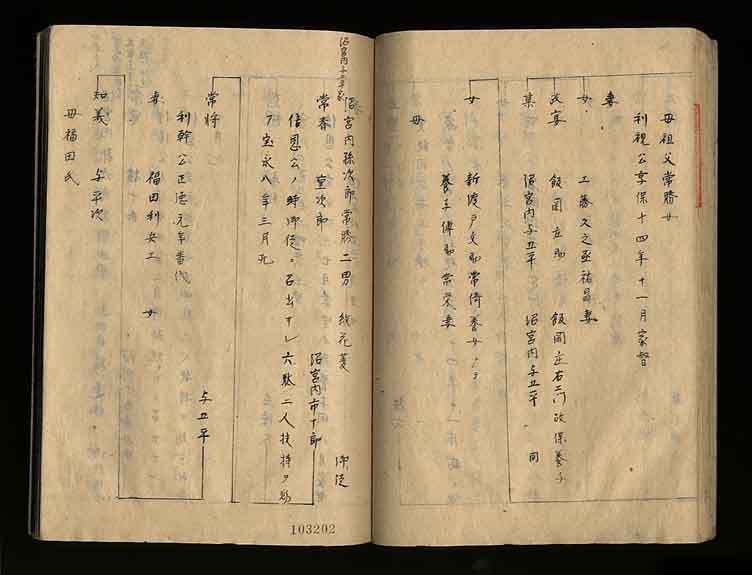 母祖父常勝女
利視公享保十四年十一月家督
妻
女 工藤久之丞祐昌妻
政宴 飯岡庄助 飯岡庄右エ門政保養子
某 沼宮内与五平 沼宮内与五平 同
女 新渡戸文助常倚養女
養子傅助常栄妻
母
沼宮内孫次郎常勝二男 紋花菱 御徒
常春 沼宮内市十郎
信恩公ノ時御徒 召出サレ六駄二人扶持
宝永八年三月死
常将 与五平
利幹公正徳元年番代
妻 福田利兵エ 女
知義 与平次
母福田氏
103202